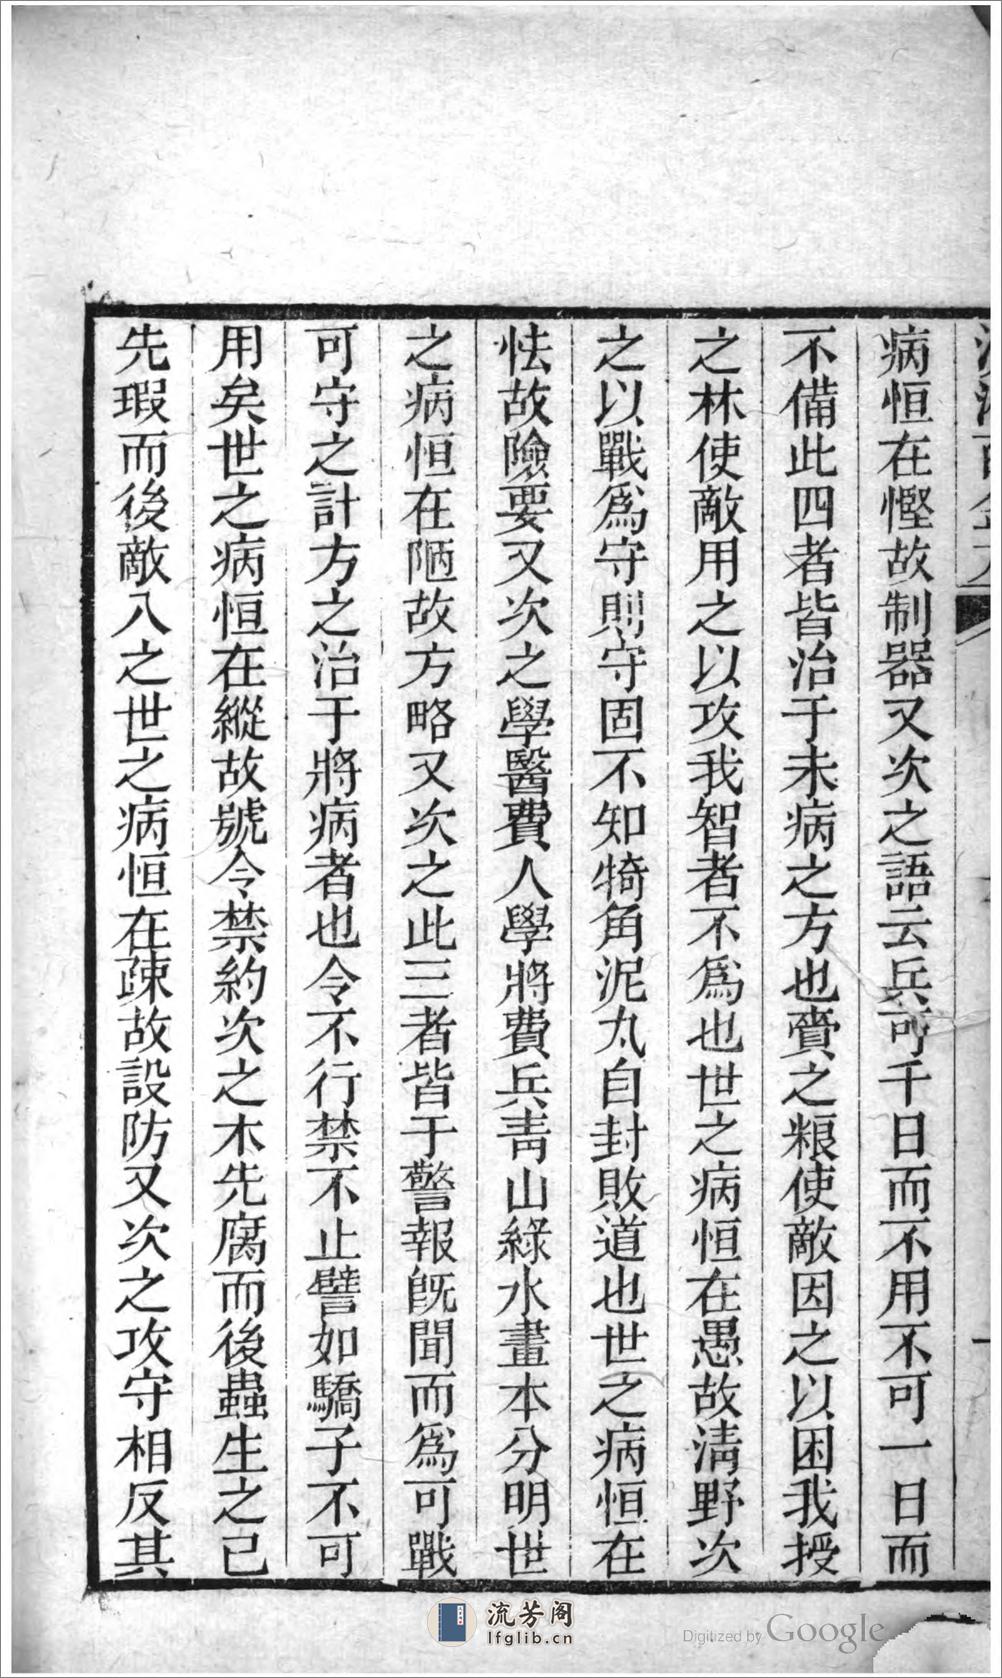 病恒在慳故制器又次之語云兵可千日而不用不可一日而
不備此四者皆治于未病之方也賷之粮使敵因之以困我授
之林使敵用之以攻我智者不爲也世之病恒在愚故淸野次
之以戰爲守則守固不知犄角泥丸自封敗道也世之病恒在
怯故險要又次之學醫費人學將費兵靑山綠水畫本分明世
之病恒在陋故方略又次之此三者皆于警報旣聞而爲可戰
可守之計方之治于將病者也令不行禁不止譬如驕子不可
用矣世之病恒在縱故號令禁約次之木先腐而後蟲生之已
先瑕而後敵入之世之病恒在疎故設防又次之攻守相反其
流芳阁
lfglib.cn
Digitized by Google